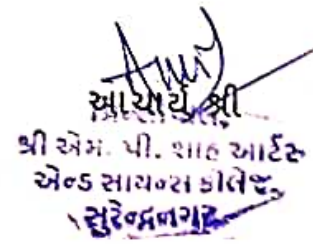 આચાર્ય શ્રી
શ્રી એમ. પી. શાહ આર્ટસ
એન્ડ સાયન્સ કોલેજ,
સુરેન્દ્રનગર